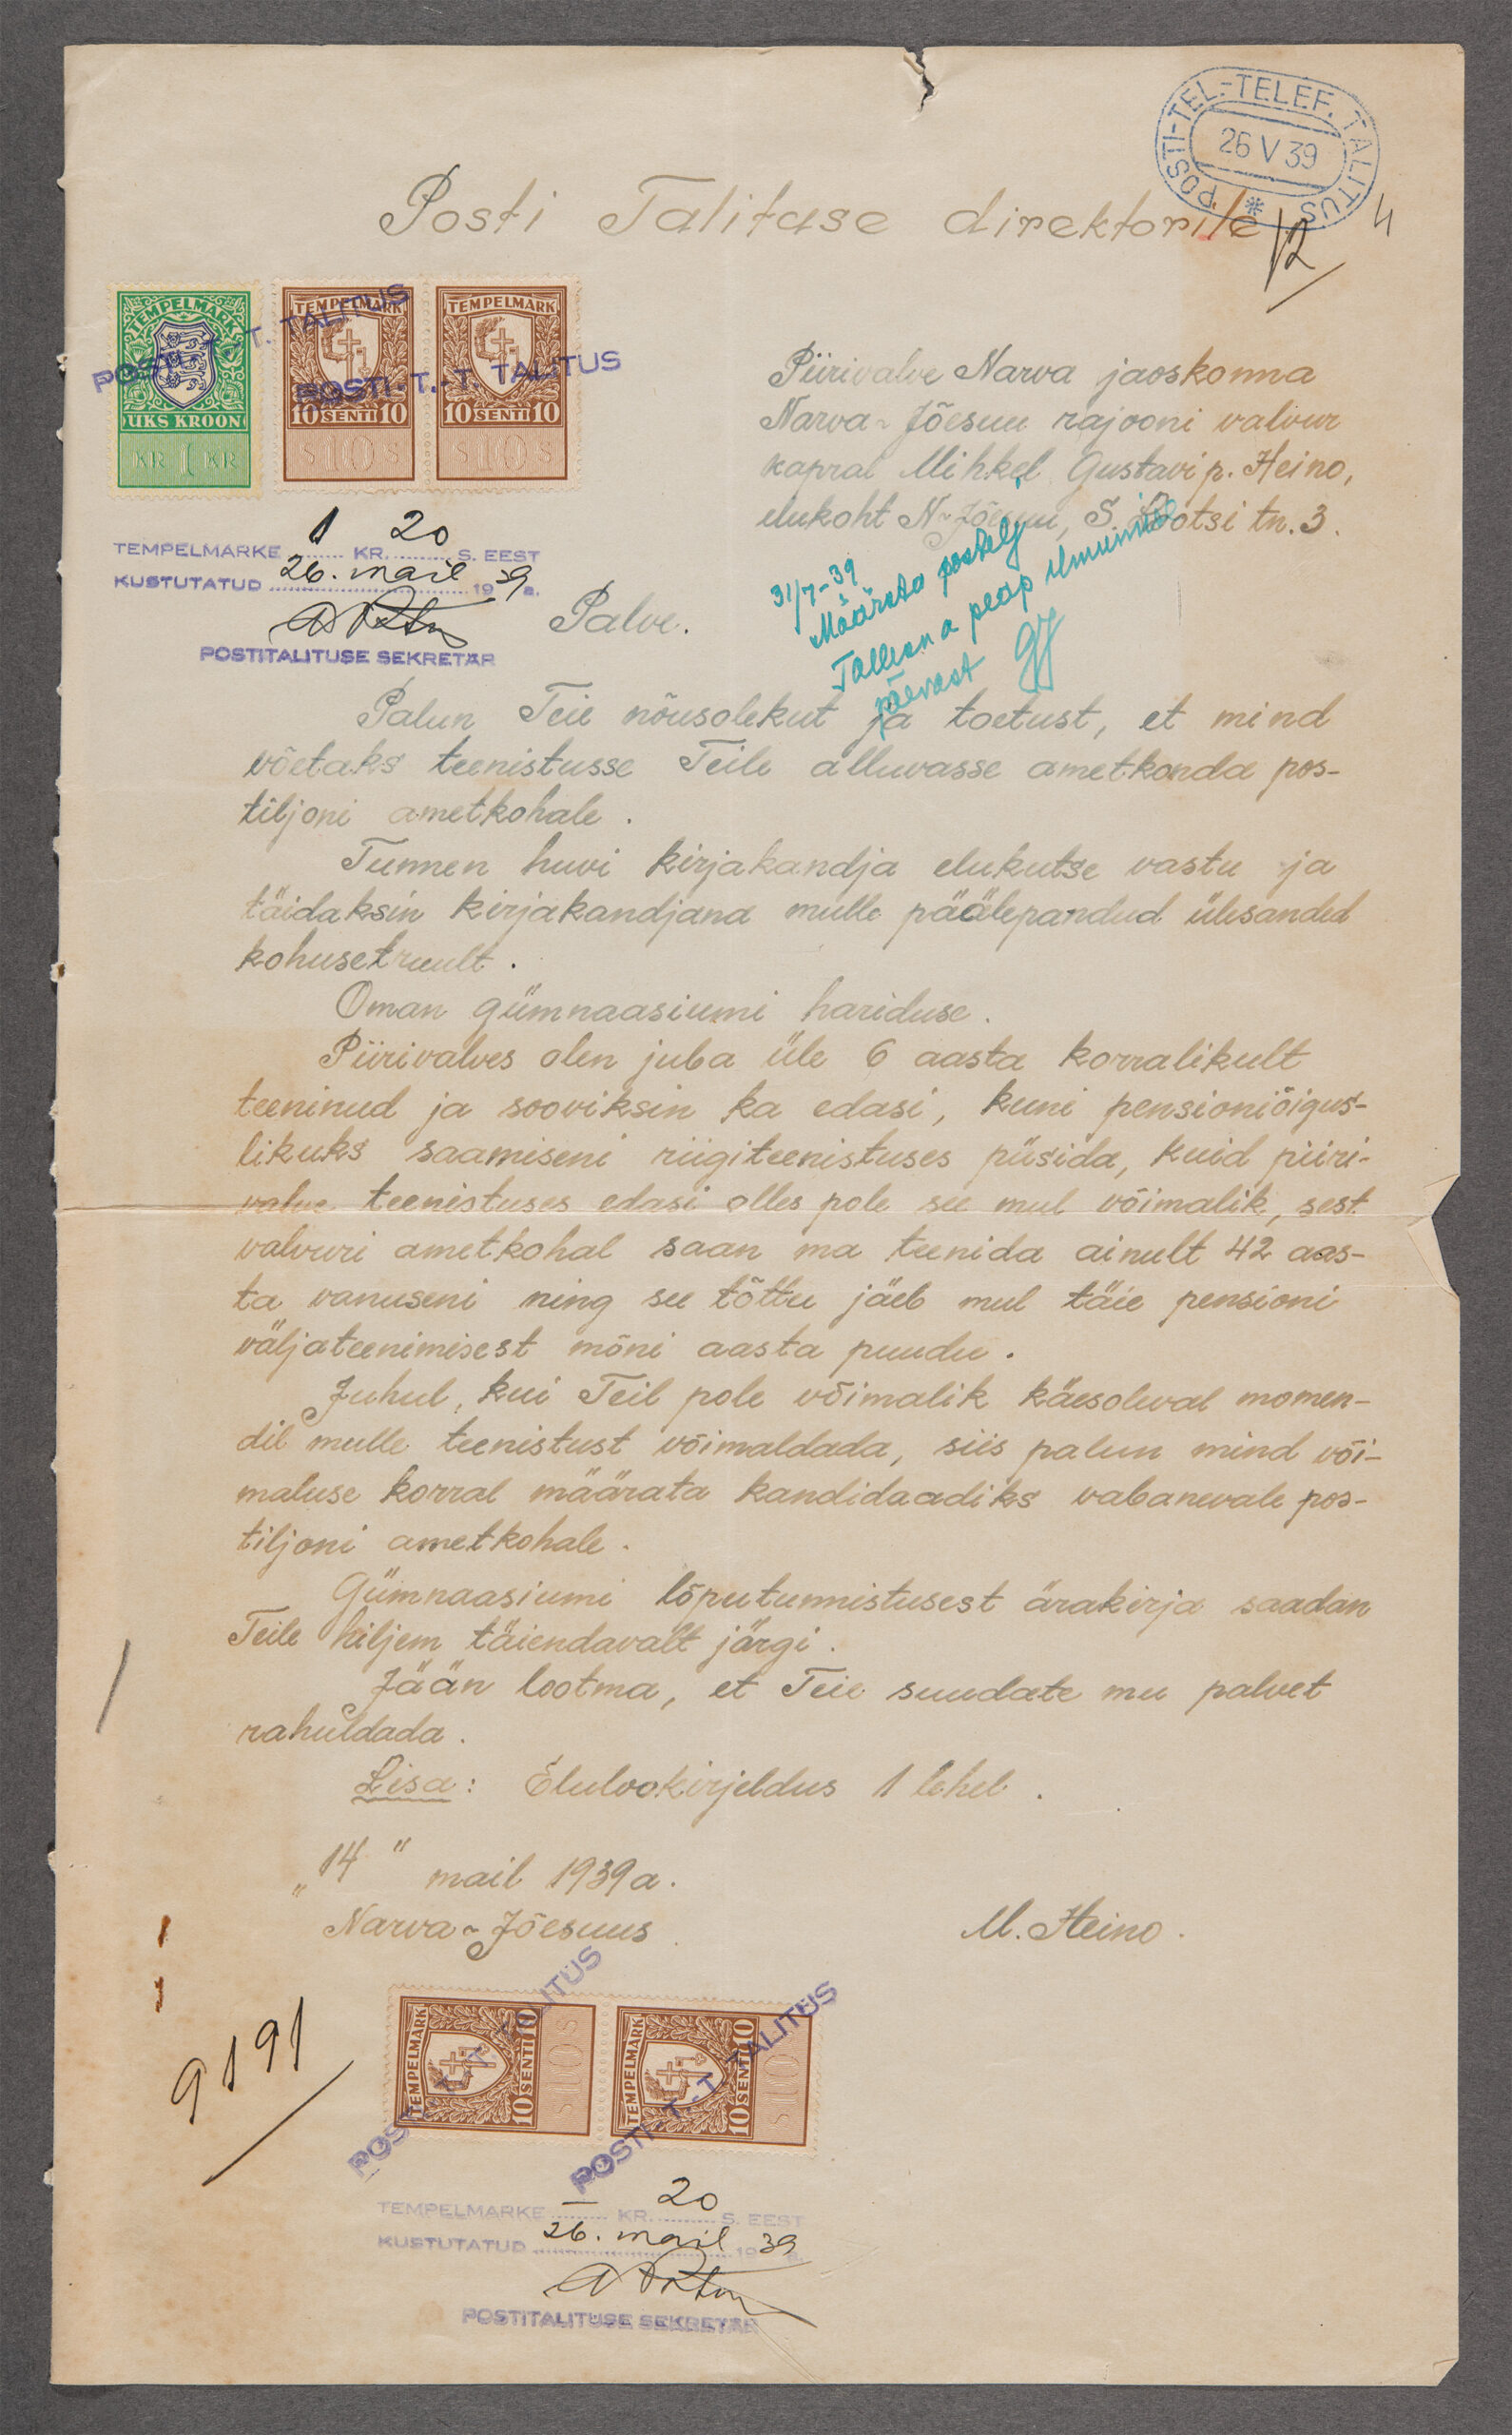 POSTI-TEL.-TELEF. TALITUS
26 V 39
Posti Talituse direktorile
12
4
TEMPELMARK
ÜKS KROON
KR 1 KR
TEMPELMARK
10 SENTI 10
S 10 S
TEMPELMARK
10 SENTI 10
S 10 S
POSTI-T.-T. TALITUS
POSTI-T.-T. TALITUS
TEMPELMARKE 1 KR. 20 S. EEST
KUSTUTATUD 26. mail 1939 a.
POSTITALITUSE SEKRETÄR
Piirivalve Narva jaoskonna
Narva-Jõesuu rajooni valvur
kapral Mihkel Gustavi p. Heino,
elukoht N-Jõesuu, S. Lootsi tn. 3.
31/7-39
Määrata postelj
Tallinna peap ilmumise
päevast
Palve.
Palun Teie nõusolekut ja toetust, et mind
võetaks teenistusse Teile alluvasse ametkonda pos-
tiljoni ametkohale.
Tunnen huvi kirjakandja elukutse vastu ja
täidaksin kirjakandjana mulle päälepandud ülesanded
kohusetruult.
Oman gümnaasiumi hariduse.
Piirivalves olen juba üle 6 aasta korralikult
teeninud ja sooviksin ka edasi, kuni pensioniõigus-
likuks saamiseni riigiteenistuses püsida, kuid piiri-
valve teenistuses edasi olles pole see mul võimalik, sest
valvuri ametkohal saan ma teenida ainult 42 aas-
ta vanuseni ning see tõttu jäeb mul täie pensioni
väljateenimisest mõni aasta puudu.
Juhul, kui Teil pole võimalik käesoleval momen-
dil mulle teenistust võimaldada, siis palun mind või-
maluse korral määrata kandidaadiks vabanevale pos-
tiljoni ametkohale.
Gümnaasiumi lõputunnistusest ärakirja saadan
Teile hiljem täiendavalt järgi.
Jään lootma, et Teie suudate mu palvet
rahuldada.
Lisa: Elulookirjeldus 1 lehel.
"14" mail 1939 a.
Narva-Jõesuus
M. Heino.
9191
TEMPELMARK
10 SENTI 10
S 10 S
TEMPELMARK
10 SENTI 10
S 10 S
POSTI-T.-T. TALITUS
POSTI-T.-T. TALITUS
TEMPELMARKE — KR. 20 S. EEST
KUSTUTATUD 26. mail 1939 a.
POSTITALITUSE SEKRETÄR